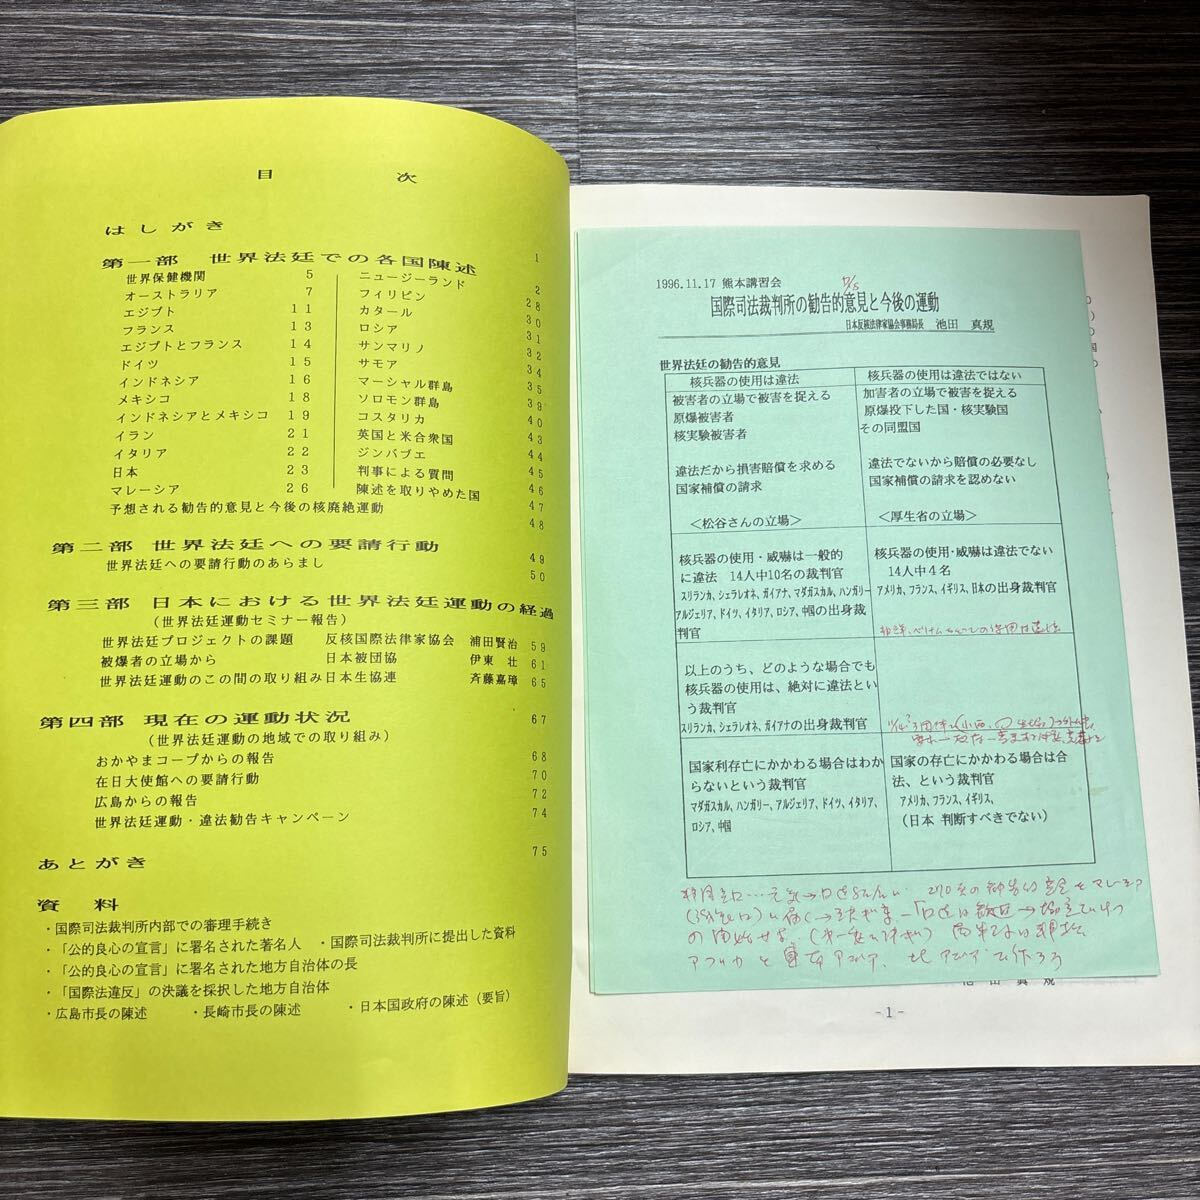 目　次
はしがき 1
第一部 世界法廷での各国陳述 2
世界保健機関 5
オーストラリア 7
エジプト 11
フランス 13
エジプトとフランス 14
ドイツ 15
インドネシア 16
メキシコ 18
インドネシアとメキシコ 19
イラン 21
イタリア 22
日本 23
マレーシア 26
ニュージーランド 28
フィリピン 30
カタール 31
ロシア 32
サンマリノ 34
サモア 35
マーシャル群島 39
ソロモン群島 40
コスタリカ 43
英国と米合衆国 44
ジンバブエ 45
判事による質問 46
陳述を取りやめた国 47
予想される勧告的意見と今後の核廃絶運動 48
第二部 世界法廷への要請行動 49
世界法廷への要請行動のあらまし 50
第三部 日本における世界法廷運動の経過
(世界法廷運動セミナー報告)
世界法廷プロジェクトの課題 反核国際法律家協会 浦田賢治 59
被爆者の立場から 日本被団協 伊東 壮 61
世界法廷運動のこの間の取り組み 日本生協連 斉藤嘉璋 65
第四部 現在の運動状況 67
(世界法廷運動の地域での取り組み)
おかやまコープからの報告 68
在日大使館への要請行動 70
広島からの報告 72
世界法廷運動・違法勧告キャンペーン 74
あとがき 75
資 料
・国際司法裁判所内部での審理手続き
・「公的良心の宣言」に署名された著名人 ・国際司法裁判所に提出した資料
・「公的良心の宣言」に署名された地方自治体の長
・「国際法違反」の決議を採択した地方自治体
・広島市長の陳述 ・長崎市長の陳述 ・日本国政府の陳述(要旨)
1996.11.17 熊本講習会
国際司法裁判所の勧告的意見と今後の運動
日本反核法律家協会事務局長 池田 真規
世界法廷の勧告的意見
核兵器の使用は違法
被害者の立場で被害を捉える
原爆被害者
核実験被害者
違法だから損害賠償を求める
国家補償の請求
<松谷さんの立場>
核兵器の使用は違法ではない
加害者の立場で被害を捉える
原爆投下した国・核実験国
その同盟国
違法でないから賠償の必要なし
国家補償の請求を認めない
<厚生省の立場>
核兵器の使用・威嚇は一般的
に違法 14人中10名の裁判官
スリランカ、シェラレオネ、ガイアナ、マダガスカル、ハンガリー
アルジェリア、ドイツ、イタリア、ロシア、中国の出身裁
判官
核兵器の使用・威嚇は違法でない
14人中4名
アメリカ、フランス、イギリス、日本の出身裁判官
以上のうち、どのような場合でも
核兵器の使用は、絶対に違法とい
う裁判官
スリランカ、シェラレオネ、ガイアナの出身裁判官
国家利存亡にかかわる場合はわか
らないという裁判官
マダガスカル、ハンガリー、アルジェリア、ドイツ、イタリア、
ロシア、中国
国家の存亡にかかわる場合は合
法、という裁判官
アメリカ、フランス、イギリス、
(日本 判断すべきでない)
池 田 真 規
- 1 -